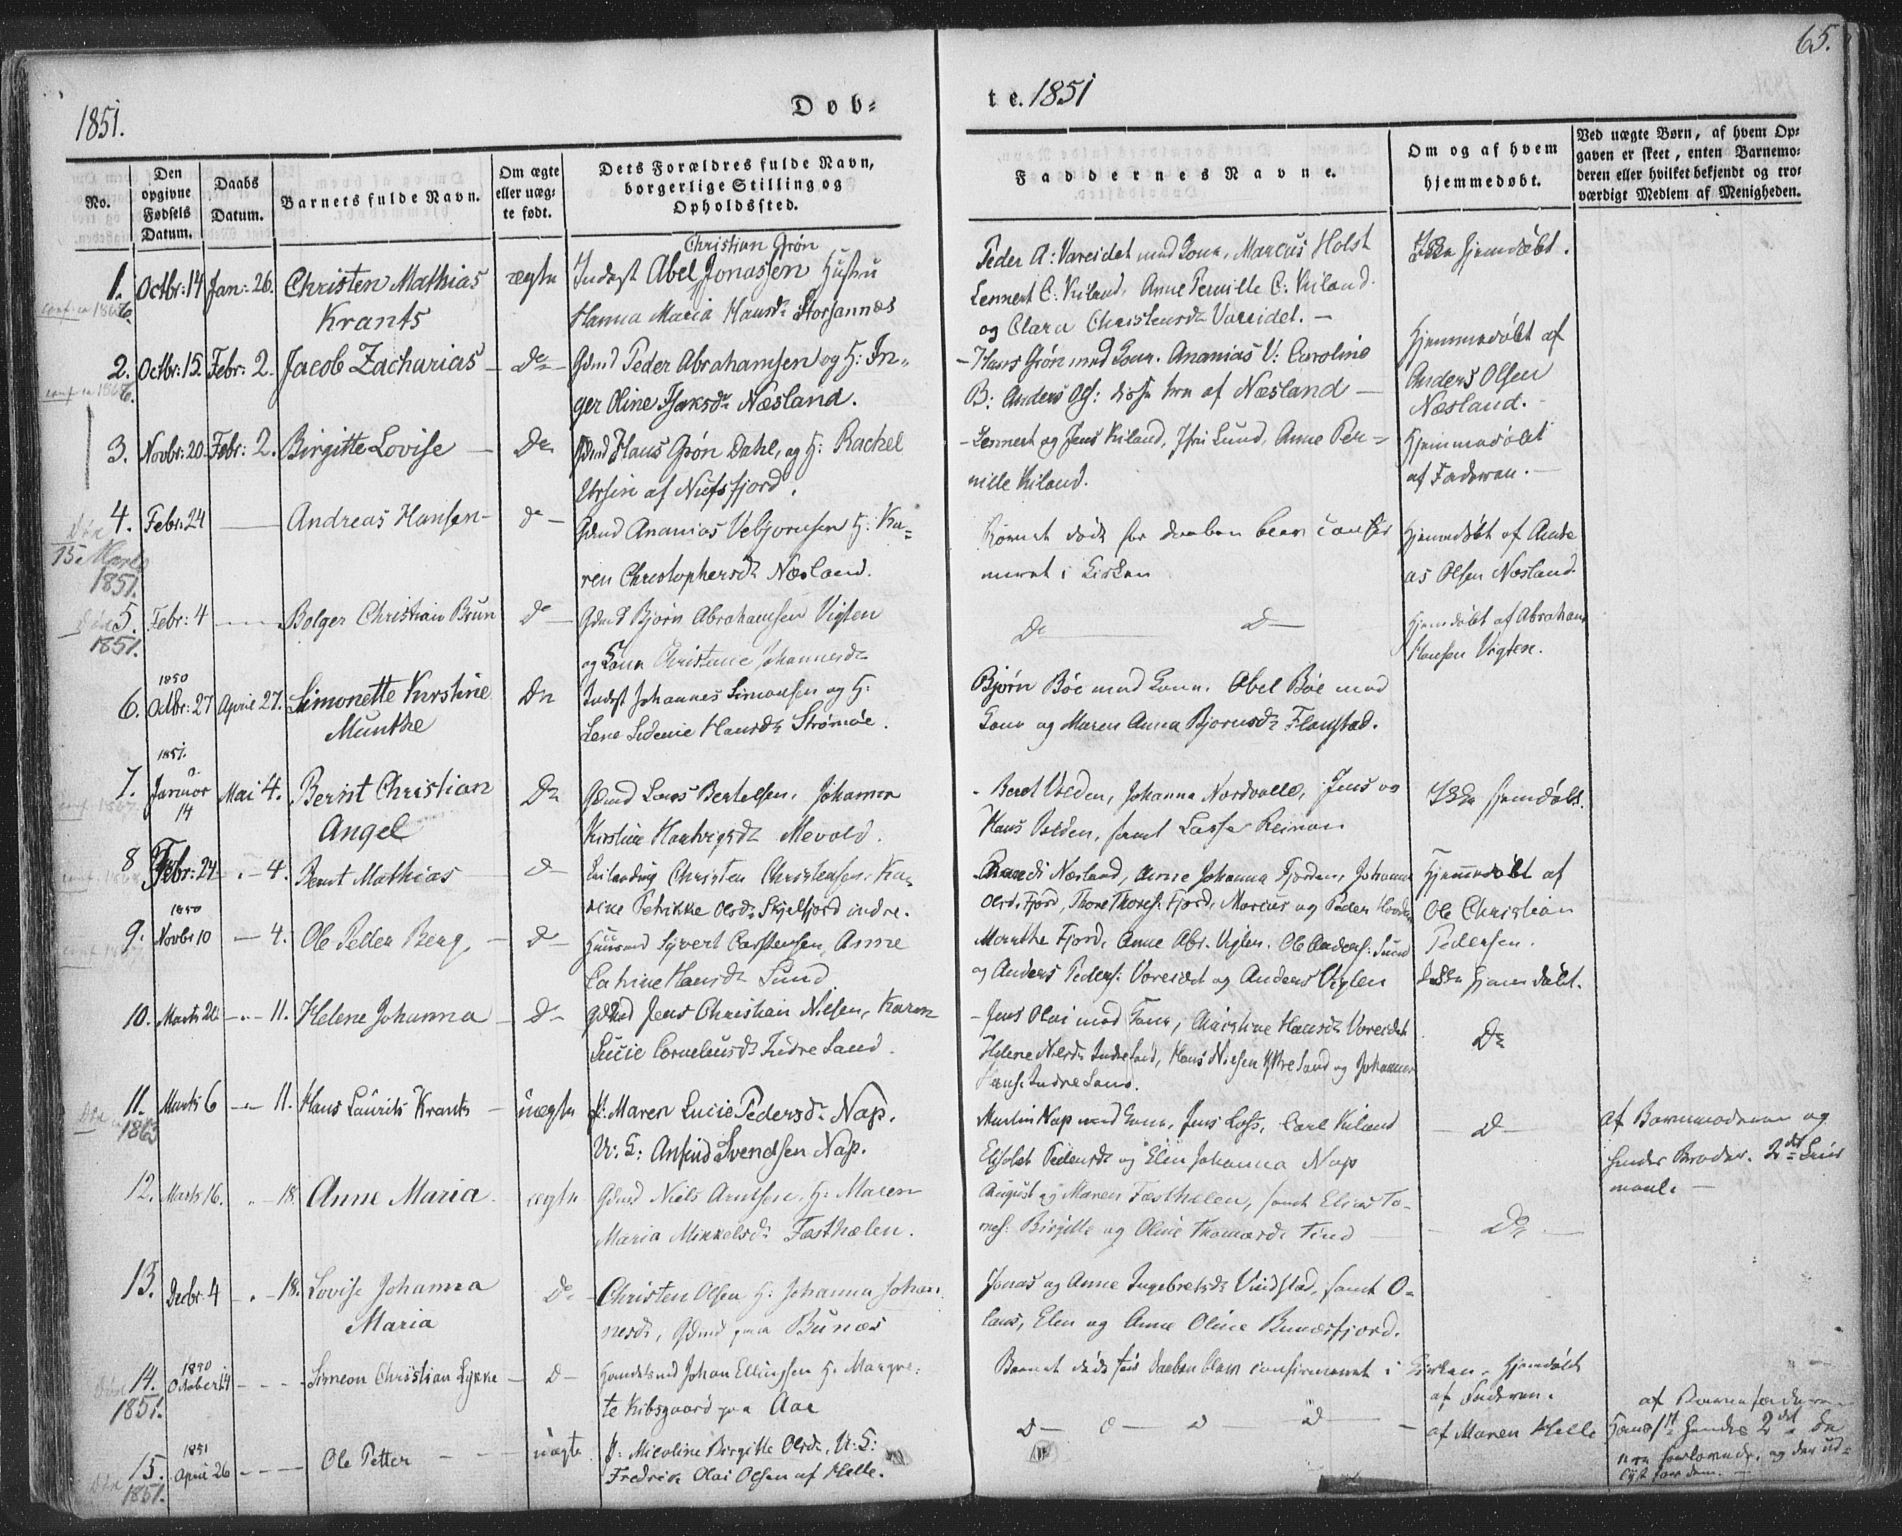 65.
1851.
Døb-
te. 1851
No.
Den opgivne Fødsels Datum.
Daabs Datum.
Barnets fulde Navn.
Om ægte eller uægte født.
Dets Forældres fulde Navn, borgerlige Stilling og Opholdssted.
Faddernes Navne.
Om og af hvem hjemmedøbt.
Ved uægte Børn, af hvem Op-
gaven er skeet, enten Barnemo-
deren eller hvilket bekjendt og tro-
værdigt Medlem af Menigheden.
1. Octbr: 14 Jan: 26. Christen Mathias Krants ægte
Christian Grøn
Inderst Abel Jonassen Hustru
Hanna Maria Hansdr Storsannæs
Peder A: Vareidet med Kone, Marcus Holst
Lennert C. Kiland, Anne Pernille C. Kiland
og Clara Christensdr Vareidet. —
Ikke hjemdøbt.
2. Octbr: 15. Febr: 2. Jacob Zacharias — Do
Gdmd Peder Abrahamsen og H: In-
ger Oline Isaksdr Næsland.
- Hans Grøn med Kone. Ananias V: Caroline
B: Anders Ols: disse tre af Næsland —
Hjemmedøbt af
Anders Olsen
Næsland. -
3. Novbr: 20 Febr: 2. Birgitte Lovise — Do
Gdmd Hans Grøn Dahl, og H: Rachel
Ursin af Nusfjord.
- Lennert og Jens Kiland, Lund, Anne Per-
nille Kiland.
Hjemmedøbt
af Faderen. —
4. Febr: 24 — Andreas Hansen - Do —
Død
15. Marts
1851.
Gdmd Ananias Vebjørnsen H: Ka-
ren Christophersdr Næsland.
Barnet døde før daaben blev confir
meret i Kirken
Hjemmedøbt af Andre
as Olsen Næsland.
5. Febr: 4 — Bolger Christian Brun Do —
Død
1851.
Gdmd Bjørn Abrahamsen Vigten
og Kone Christane Johannesdr
Do — D —
Hjemdøbt af Abraham
Hansen Vigten.
6. 1850 Octbr: 27 April 27. Simonette Kirstine Muntke Do
Inderst Johannes Simonsen og H:
Lene Sedenie Hansdr Strømøe.
Bjørn Böe med Kone. Abel Böe med
Kone og Maren Anna Bjørnsdr Flagstad.
7. 1851. Januar 14 Mai 4. Bernt Christian Angel Do
Gdmd Lars Bertelsen, Johanna
Kirstine Hartvigsdr Mevold.
- Beret Valden, Johanna Nordvolle, Jens og
Hans Valden, samt Lasse Reinan
Ikke hjemdøbt.
8 Febr: 24 - 4. Bernt Mathias — D —
Christen Christensen, Ka-
rine Petrikke Olsdr Skjelfjord indre.
Næsland, Anne Johanna Fjorden, Johanna
Olsdr Fjord, Thore Thores: Fjord, Marcus og Peder
Hjemmedøbt af
Ole Christian
Pedersen.
9. 1850 Novbr 10 — 4. Ole Petter Berg — D —
Huusmd Syvert Carstensen, Anne
Catrine Hansdr Sund
Marthe Fjord, Anne Abr. Vigten. Ole Anders: Sund
og Anders Peders: Vareidet og Anders Vigten
Ikke hjemdøbt.
10. Marts 26 - 11. Helene Johanna — D —
Gdmd Jens Christian Nilsen, Karen
Lucie Corneliusdr Indre Sand.
- Jens Olai med Kone, Christine Hansdr Vareidet
Helene Nilsdr Indre Sand, Hans Nielsen Ytre Sand og Johannes
Hans: Indre Sand.
Do
11. Marts 6 - 11. Hans Laurits Krants — uægte
Død
1863
P: Maren Lucie Pedersdr Nap.
U: K: Anfind Svendsen Nap.
Martin Nap med Kone, Jens Lofs, Carl Kiland
Elisabet Pedersdr og Elen Johanna Nap
— D —
af Barnemoderen og
hendes Broder. 2det Leier
maal. —
12. Marts 16. - 18. Anne Maria. ægte
Gdmd Niels Arntsen. H: Maren
Maria Mikkelsdr Fæsthælen.
August og Maren Fæsthælen, samt Elias To-
res: Birgitte og Oline Thomasdr Tind
— Do —
13. Decbr 4 - 18. Lovise Johanna Maria D —
Christen Olsen H: Johanna Johan
nesdr, Gdmd paa Bunæs
Jonas og Anne Ingebretsdr Vindstad, samt O-
laus, Elen og Anne Oline Bunæsfjord.
14. 1850 October 14 - - - Simeon Christian Lykke — D —
Død
1851.
Handelsmd Johan Ellingsen H: Margre-
te Kibsgaard paa Aae
Barnet døde før Daaben blev confirmeret i Kirken, hjemdøbt
af Faderen.
15. 1851 April 26 — Ole Petter - - - uægte
Død
1851.
P: Nicoline Birgitte Olsdr. U: K:
Fredrik Olai Olsen af Helle.
D — o — D — D —
af Maren Helle
af Barnefaderen
Hans 1st hendes 2det
forlovede, og
lyst for dem. —